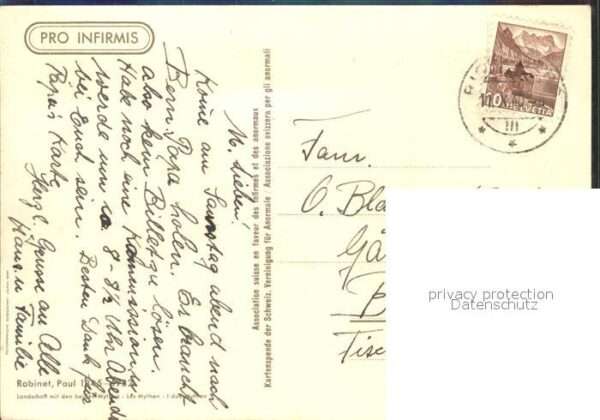 PRO INFIRMIS
M. Lieben!
Komme am Samstag abend nach
Bern Papa holen. Er braucht
also kein Billet zu lösen.
Habe noch eine Kommission u
werde um ca 8 - 8½ Uhr Abends
bei Euch sein. Besten Dank für
Papa's Karte
Herzl. Grüsse an Alle
Hans u Familie
Association suisse en faveur des infirmes et des anormaux
Kartenspende der Schweiz. Vereinigung für Anormale · Associazione svizzera per gli anormali
Robinet, Paul
Landschaft mit den beiden Mythen - Les Mythen - I due Mythen
10 HELVETIA
III
Fam.
O. Bla
Gä
B
Fisc
privacy protection
Datenschutz